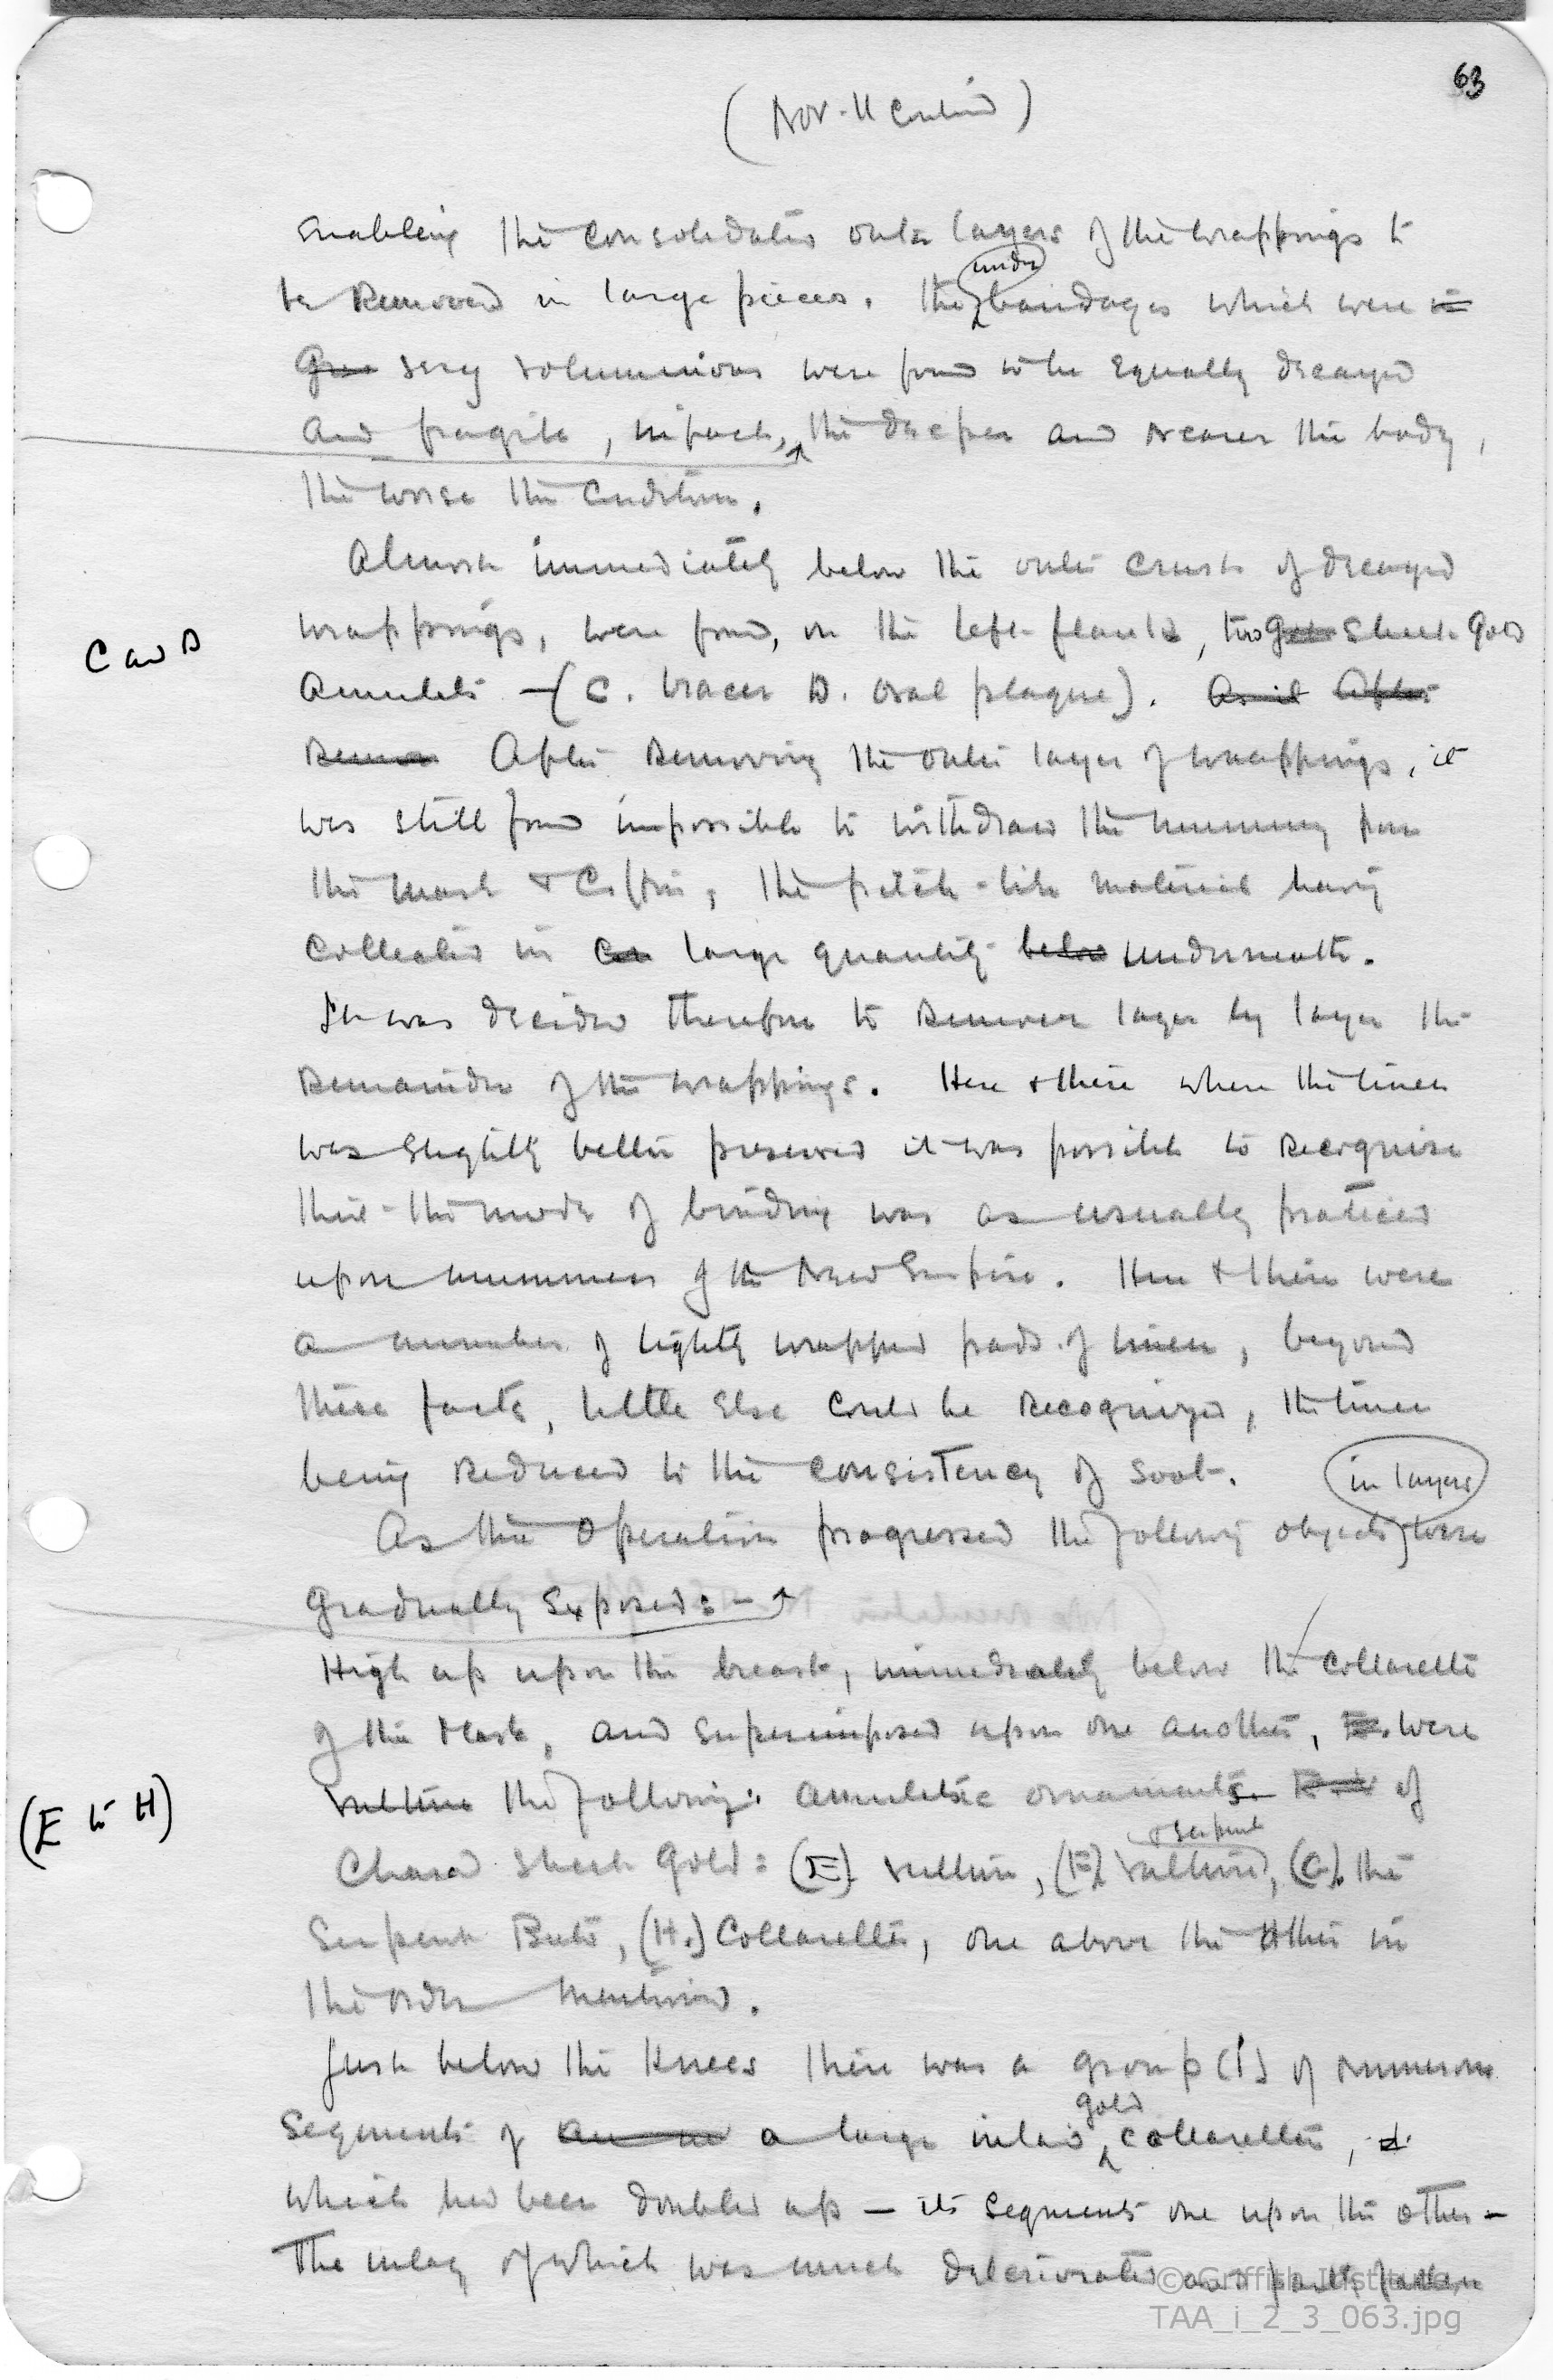 63
(Nov. 11 contin'd)
enabling the consolidated outer layers of the wrappings to
be removed in large pieces. The under bandages which were
very voluminous were found to be equally decayed
and fragile, in fact, the deeper and nearer the body,
the worse the condition.
Almost immediately below the outer crust of decayed
wrappings, were found, on the left flank, two sheet gold
C and D
amulets – (C. bracer D. oval plaque). After
After removing the outer layer of wrappings, it
was still found impossible to withdraw the mummy from
the mask & coffin, the pitch-like material having
collected in large quantity below underneath.
It was decided therefore to remove layer by layer the
remainder of the wrappings. Here & there where the linen
was slightly better preserved it was possible to recognise
that the mode of binding was as usually practiced
upon mummies of the New Empire. Here & there were
a number of lightly wrapped pads of linen, beyond
these facts, little else could be recognized, the linen
being reduced to the consistency of soot.
in layers
As the operation progressed the following objects were
gradually exposed:–
High up upon the breast, immediately below the collarette
of the mask, and superimposed upon one another, were
vulture the following: amuletic ornaments of
(E to H)
& serpent
chased sheet gold: (E) vulture, (F) vulture, (G). the
Serpent Buto, (H.) Collarette, one above the other in
the order mentioned.
Just below the knees there was a group (I) of numerous
gold
segments of a large inlaid collarette,
which had been doubled up – its segments one upon the other –
The inlay of which was much deteriorated and partly fallen
© Griffith Institute,
TAA_i_2_3_063.jpg